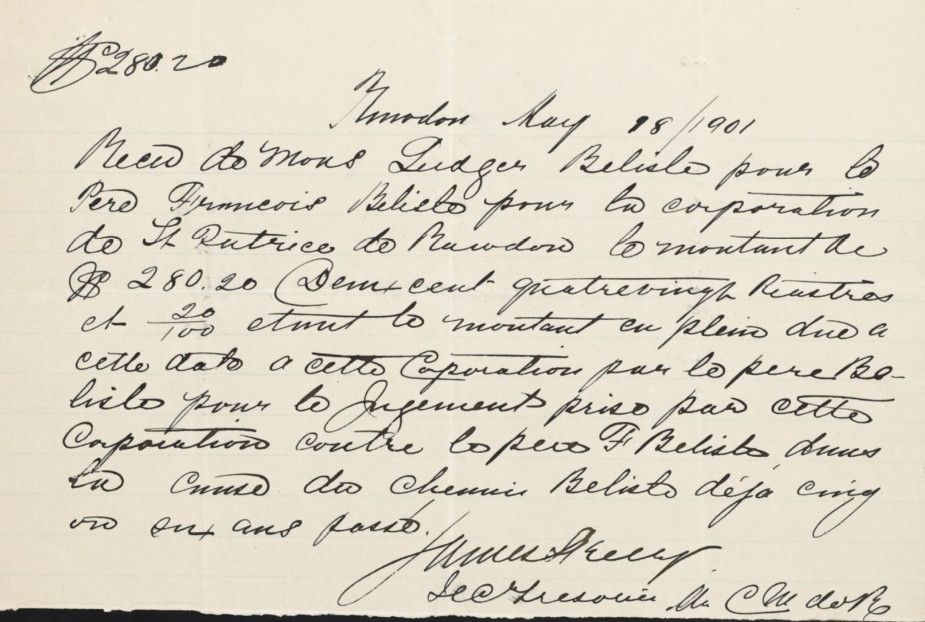 $280.20
Rawdon May 18/1901
Recu de Mons Ludger Belisle pour le
Pere Francois Belisle pour la corporation
de St Patrice de Rawdon le montant de
$ 280.20 (Deux cent quatrevingt Piastres
et 20/100 etant le montant en plein due a
cette date a cette Corporation par le pere Be-
lisle pour le Jugement prise par cette
Corporation contre le pere F Belisle dans
la cause du chemin Belisle déja cinq
ou six ans passé.
James Skelly
Sec Tresorier C M de R